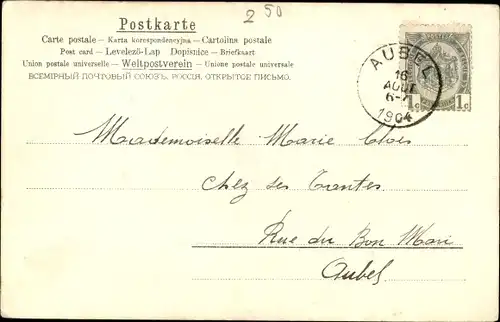 2 50
Postkarte
Carte postale – Karta korespondencyjna – Cartolina postale
Post card – Levelező-Lap Dopisnice – Briefkaart
Union postale universelle – Weltpostverein – Unione postale universale
ВСЕМІРНЫЙ ПОЧТОВЫЙ СОЮЗЪ. РОССІЯ. ОТКРЫТОЕ ПИСЬМО.
AUBEL
16
AOUT
6-7
1904
1c 1c
Mademoiselle Marie
Chez ses Tantes
Rue du Bon Mari
Aubel